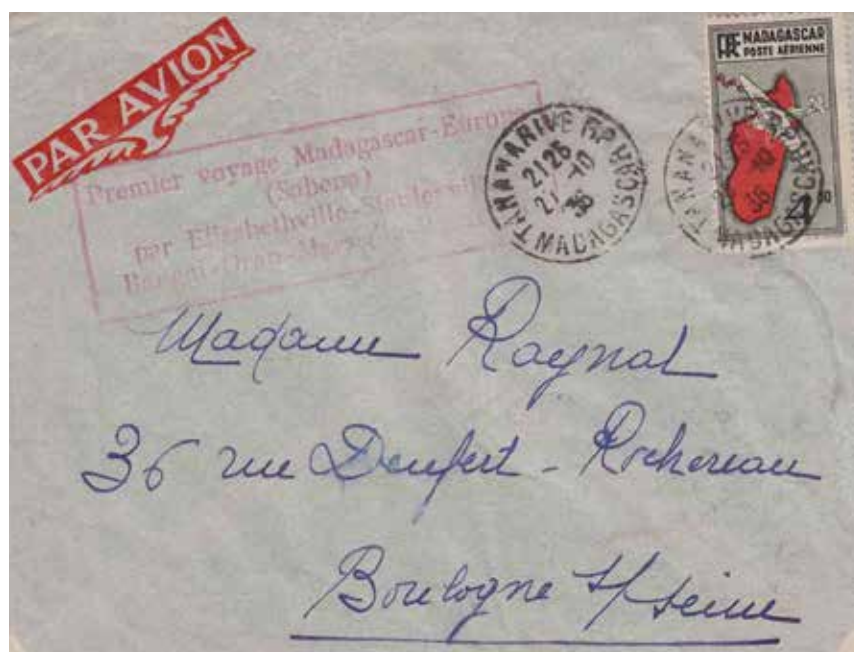 PAR AVION
Premier voyage Madagascar-Europe
(Sabena)
par Elisabethville-Stanleyville
Bangui-Oran-
TANANARIVE RP
2125
27 10
36
MADAGASCAR
MADAGASCAR
POSTE AÉRIENNE
TANANARIVE RP
10
36
MADAGASCAR
Madame Raynal
36 rue Denfert-Rochereau
Boulogne s/seine